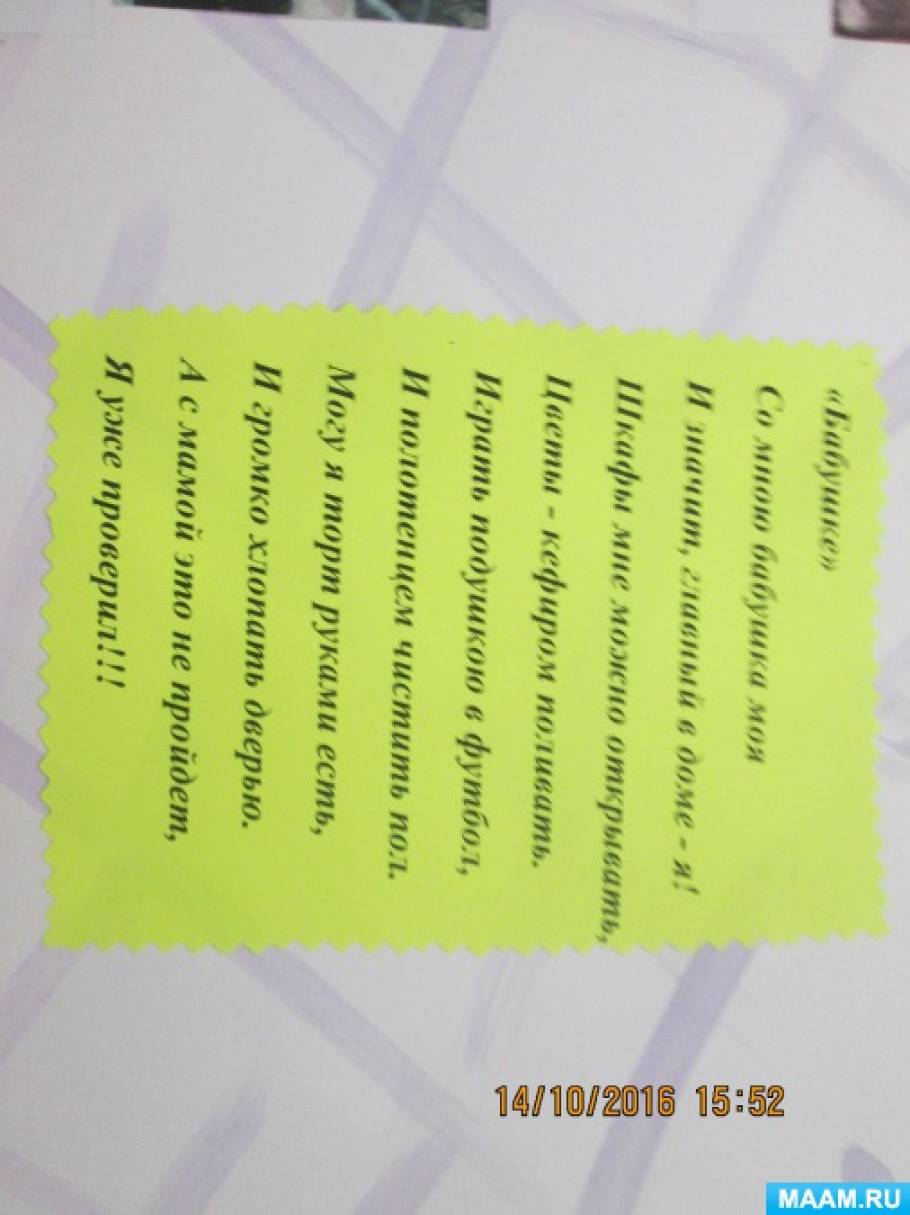 «Бабушке»
Со мною бабушка моя
И значит, главный в доме - я!
Шкафы мне можно открывать,
Цветы - кефиром поливать.
Играть подушкою в футбол,
И полотенцем чистить пол.
Могу я торт руками есть,
И громко хлопать дверью.
А с мамой это не пройдет,
Я уже проверил!!!
14/10/2016 15:52
MAAM.RU